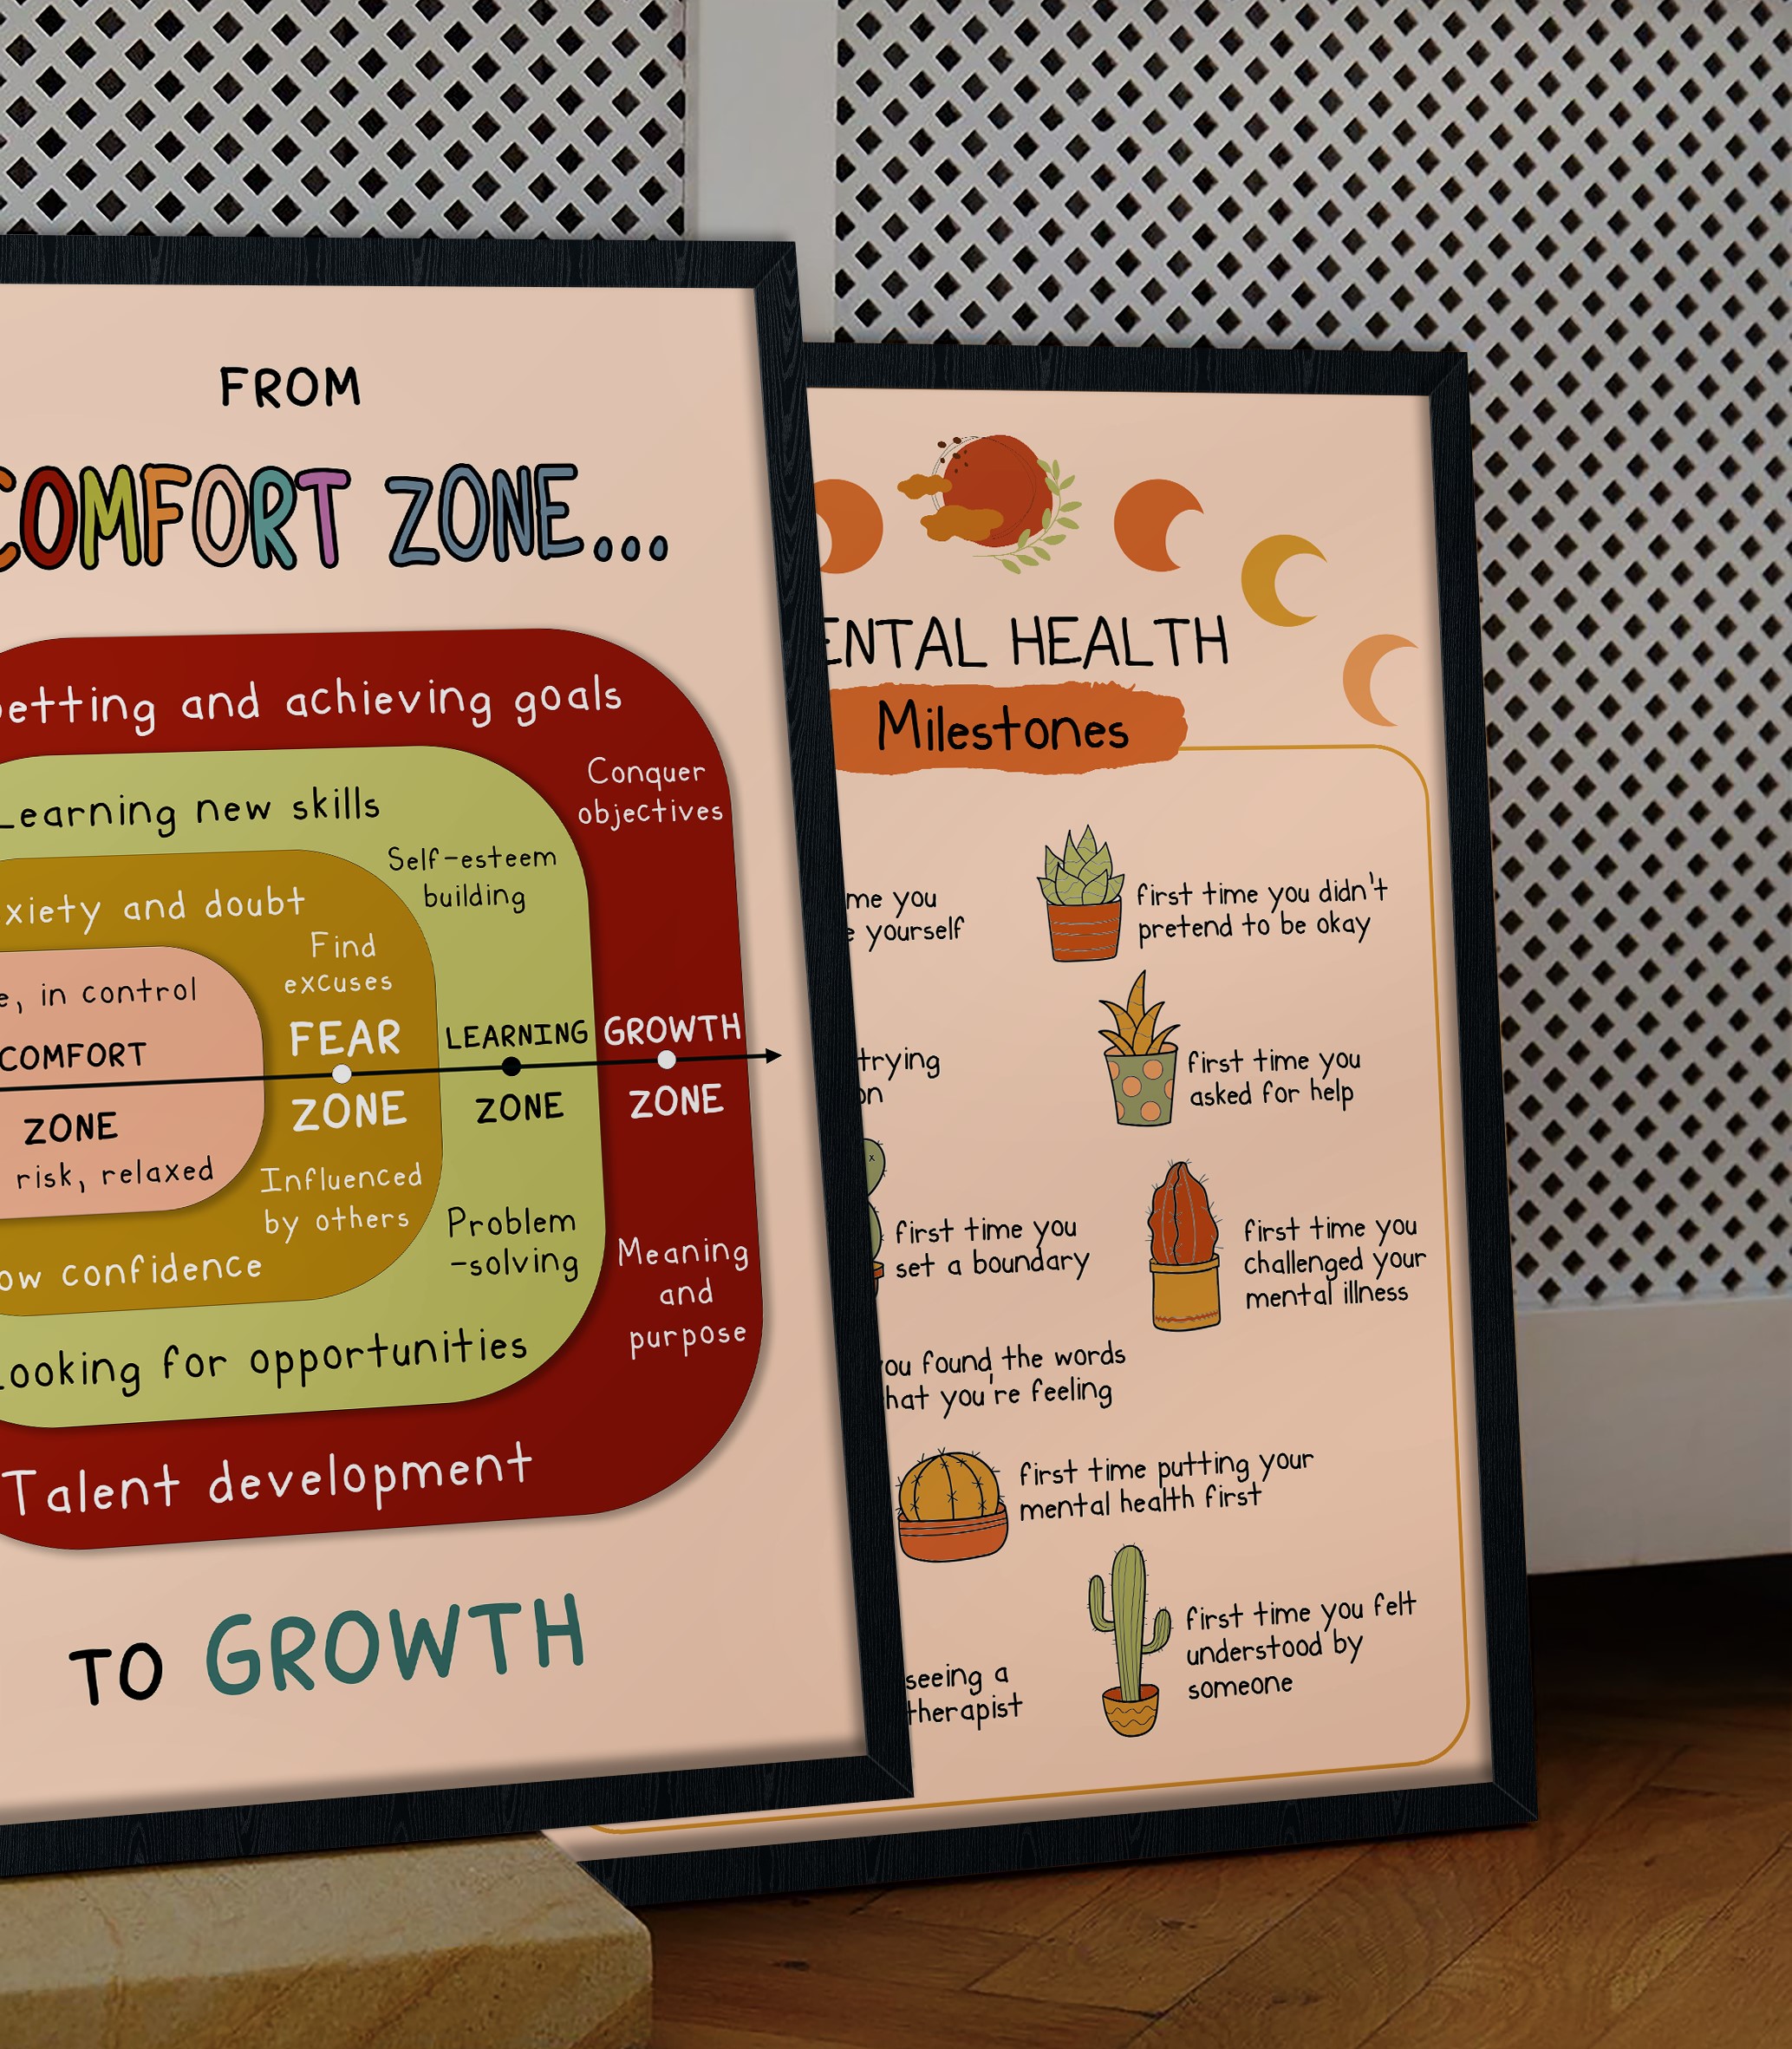 FROM
COMFORT ZONE...
and achieving goals
Conquer
objectives
Learning new skills
Self-esteem
building
and doubt
Find
excuses
in control
COMFORT
ZONE
risk, relaxed
FEAR
ZONE
LEARNING
ZONE
GROWTH
ZONE
Influenced
by others
confidence
Problem
-solving
Meaning
and
purpose
Looking for opportunities
Talent development
TO GROWTH
HEALTH
Milestones
you
yourself
first time you didn't
pretend to be okay
trying
first time you
asked for help
first time you
set a boundary
first time you
challenged your
mental illness
found the words
you're feeling
first time putting your
mental health first
seeing a
therapist
first time you felt
understood by
someone